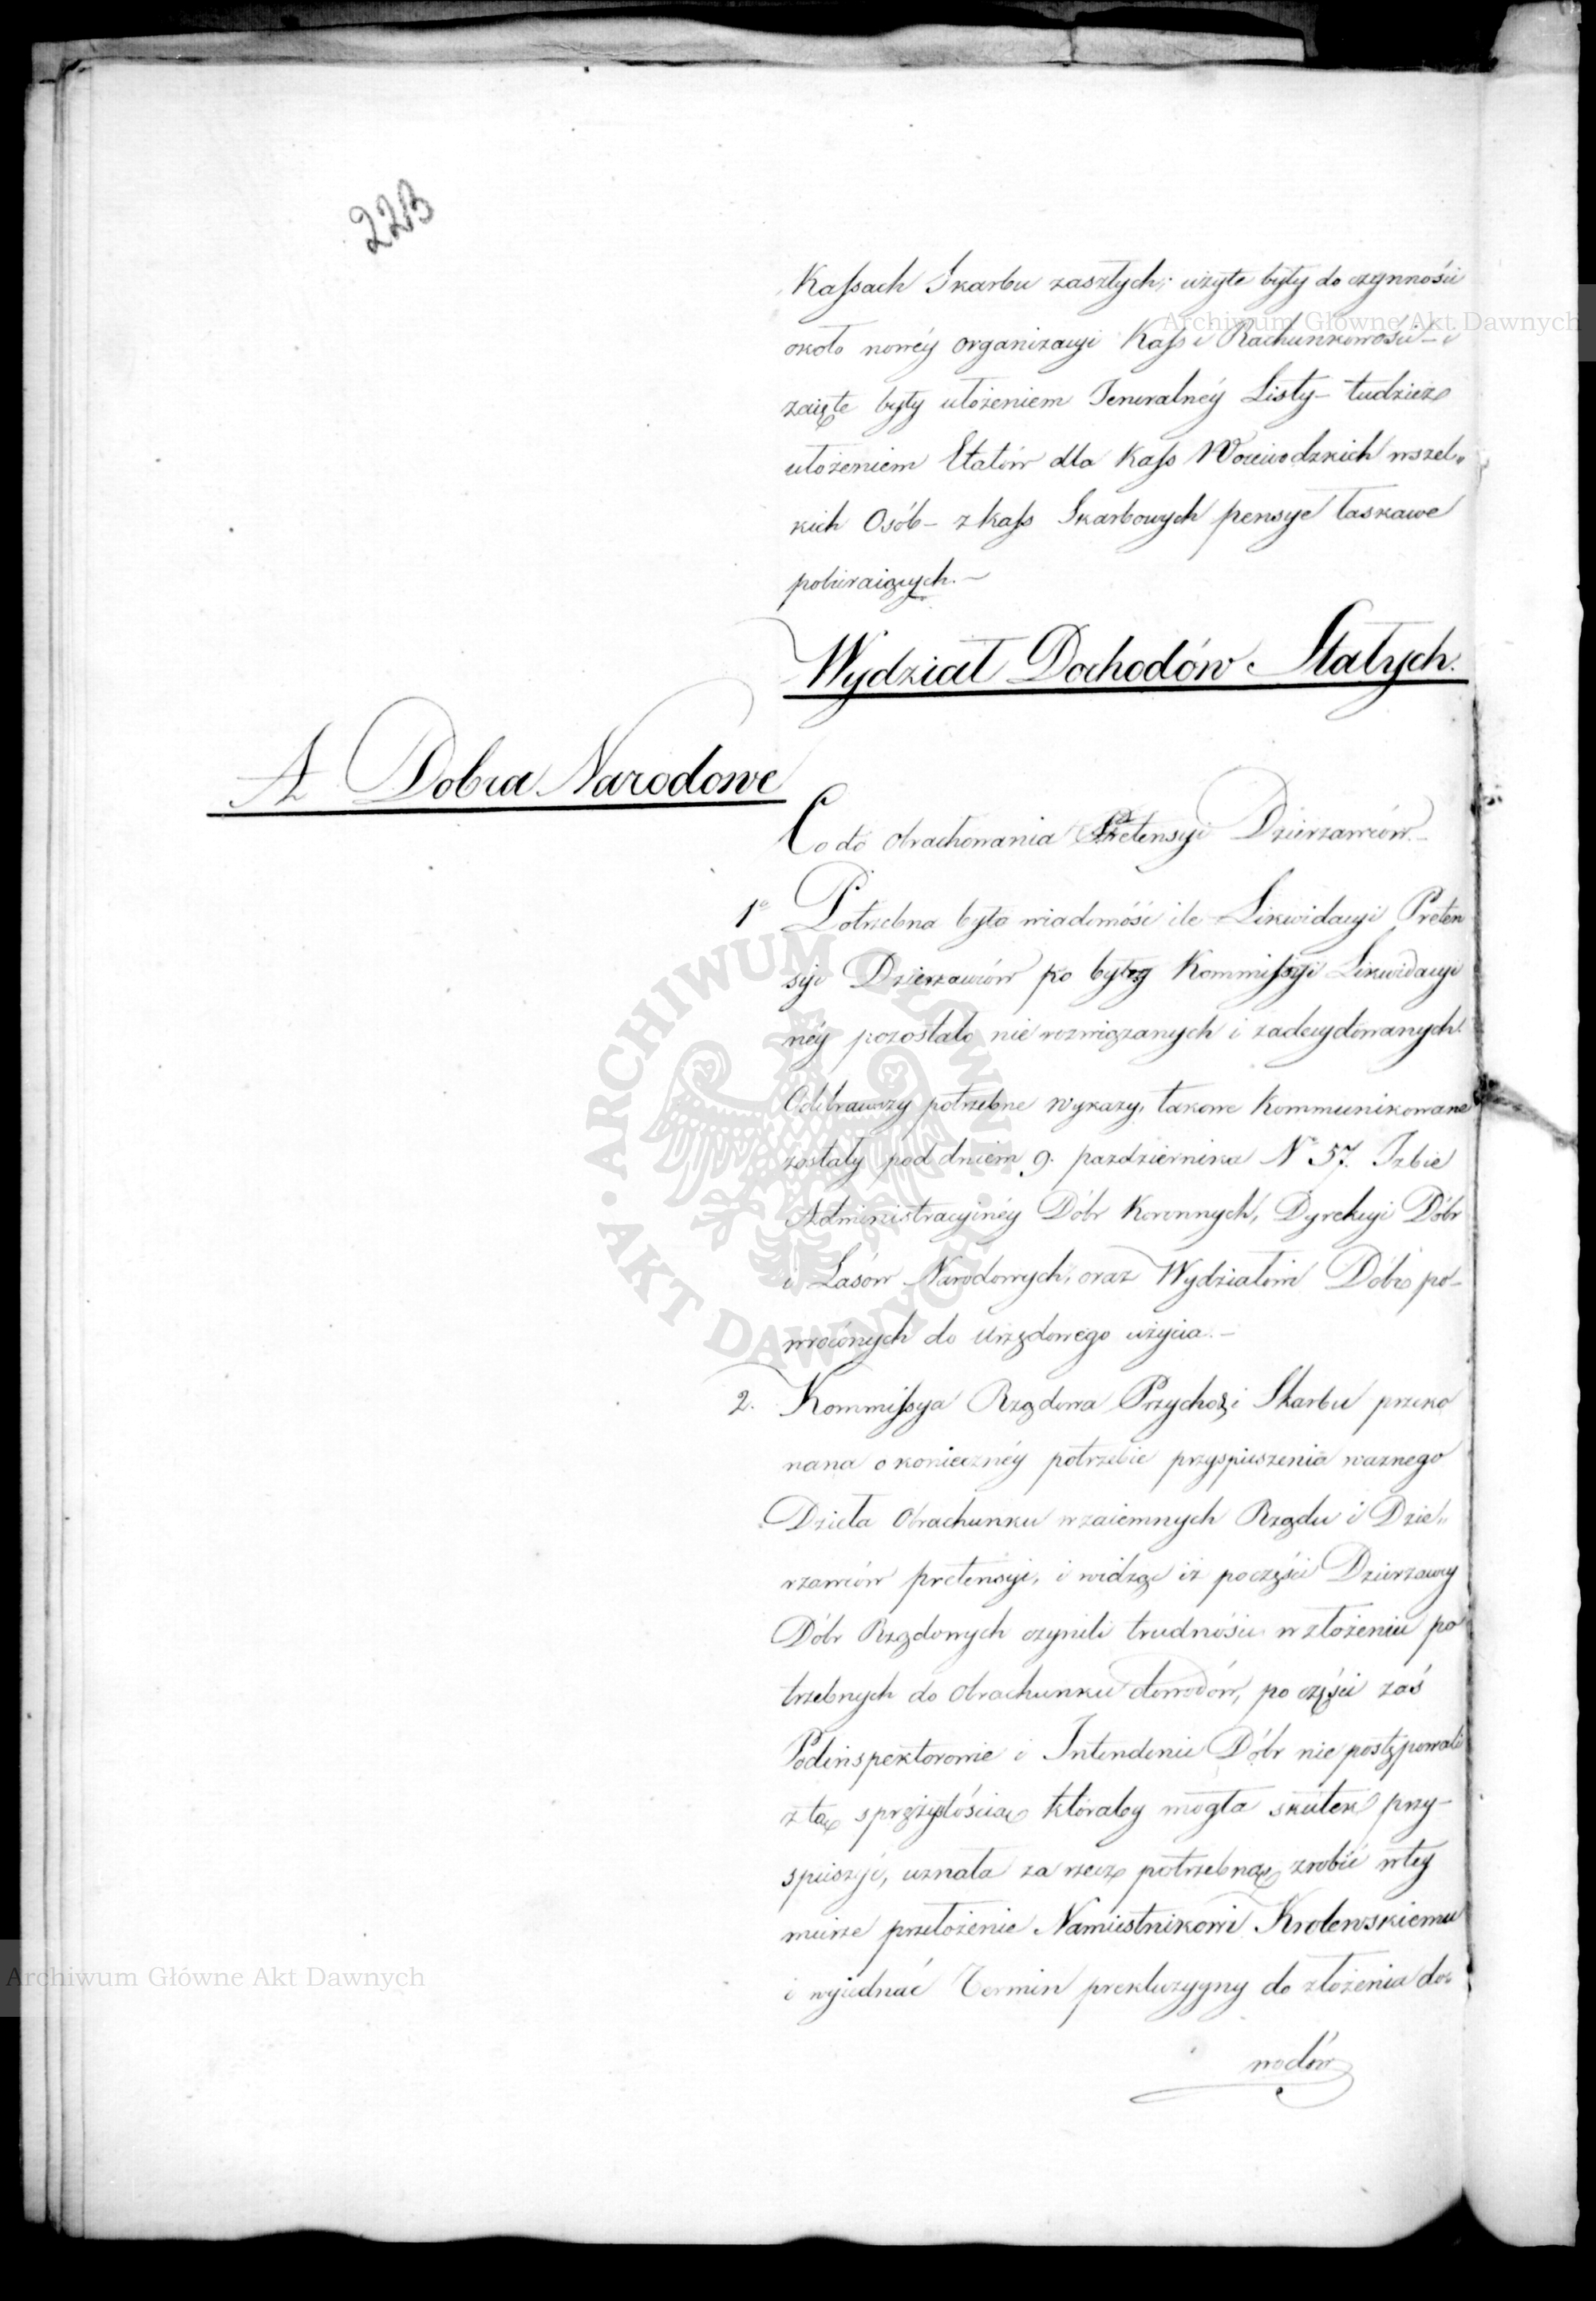 223
Kaſsach Skarbu zaszłych; użyte były do czynności
około nowéy organizacyi Kaſs i Rachunkowości – i
zaięte były ułożeniem Jeneralnéy Listy – tudzież
ułożeniem Etatów dla Kaſs Woiewodzkich wszel„
kich Osób – z kaſs Skarbowych pensye łaskawe
pobieraiących. –
Wydział Dochodów Stałych.
A Dobra Narodowe
Co do obrachowania Pretensyi Dzierzawców. –
1º Potrzebna była wiadomość ile Likwidacyi Preten
syi Dzierzawców po byłéy Kommiſsyi Likwidacyi
néy pozostało nie rozwiązanych i zadecydowanych.
Odebrawszy potrzebne wykazy, takowe kommunikowane
zostały pod dniem 9. pazdziernika Nº 57. Izbie
Administracyinéy Dóbr Koronnych, Dyrekcyi Dóbr
i Lasów Narodowych, oraz Wydziałowi Dóbr po–
wróconych do urzędowego użycia. –
2. Kommiſsya Rządowa Przychod: i Skarbu przeko
nana o koniecznéy potrzebie przyspieszenia waznego
Dzieła Obrachunku wzaiemnych Rządu i Dzie„
rzawców pretensyi, i widząc iż po części Dzierzawcy
Dóbr Rządowych czynili trudności w złożeniu po
trzebnych do Obrachunku dowodów, po części zaś
Podinspektorowie i Intendenci Dóbr nie postępowali
z tą sprężystością któraby mogła skutek przy–
spieszyć, uznała za rzecz potrzebną zrobić w tey
mierze przełożenie Namiestnikowi Krolewskiemu
i wyiednać Termin prekluzyyny do złożenia do„
wodów
Archiwum Główne Akt Dawnych
Archiwum Główne Akt Dawnych
ARCHIWUM GŁÓWNE · AKT DAWNYCH ·